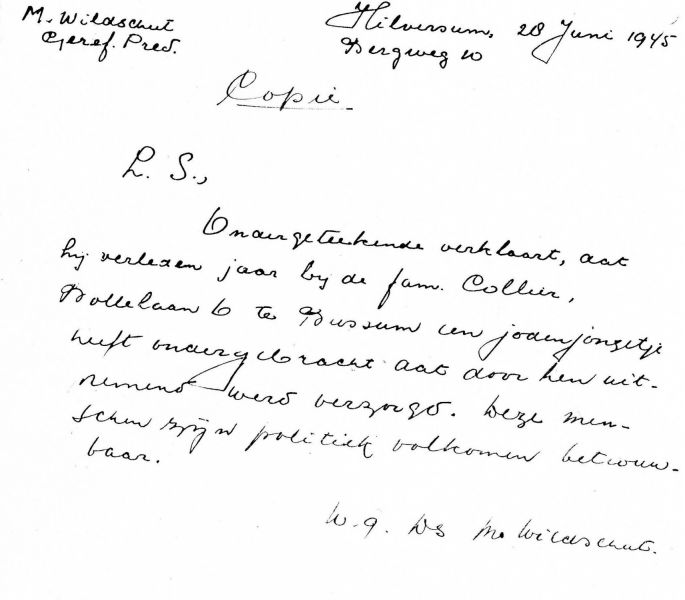 M. Wildschut
Geref. Pred.
Hilversum, 28 Juni 1945
Bergweg 10
Copie
L. S.,
Ondergeteekende verklaart, dat
hij verleden jaar bij de fam. Collier,
Bollelaan 6 te Bussum een jodenjongetje
heeft ondergebracht dat door hen uit-
nemend werd verzorgd. Deze men-
schen zijn politiek volkomen betrouw-
baar.
W. g. Ds M. Wildschut.